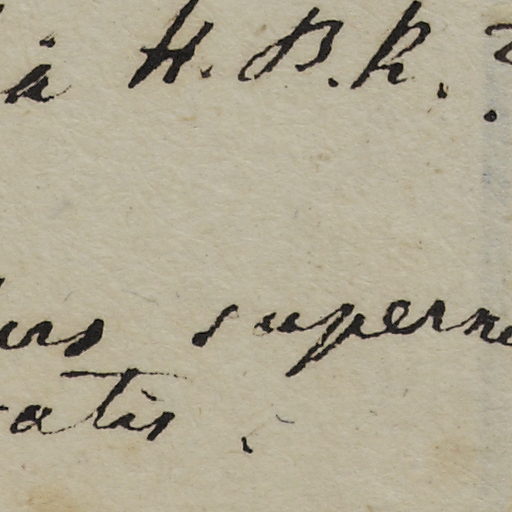 à H. B. K. ?
urs superne
ratis.